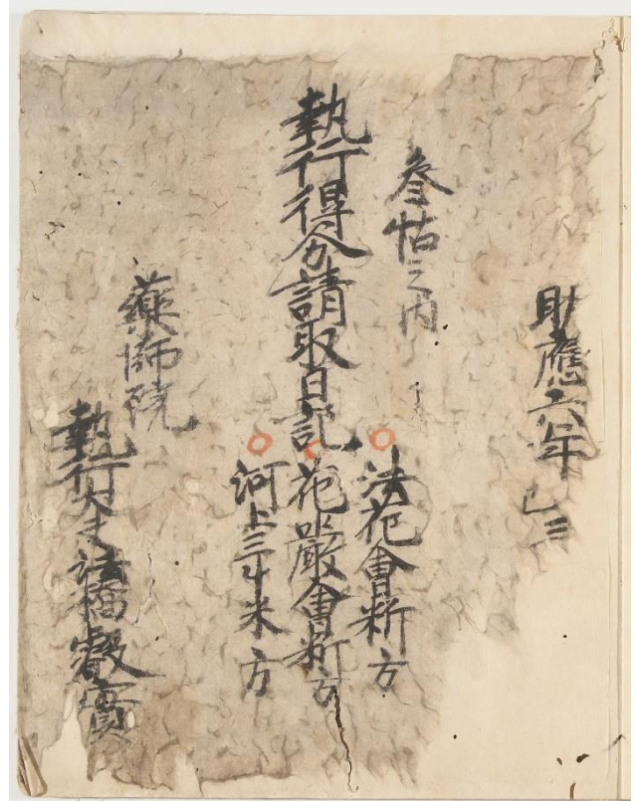 明應六年
參帖之内
執行得分請取日記
法花會料方
花嚴會料方
河上三斗米方
藥師院
執行大法橋叡實